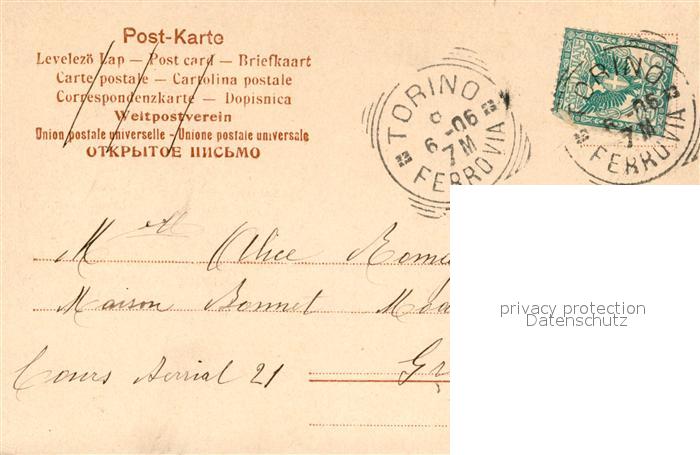 Post-Karte
Levelező Lap — Post card — Briefkaart
Carte postale — Cartolina postale
Correspondenzkarte — Dopisnica
Weltpostverein
Union postale universelle - Unione postale universale
ОТКРЫТОЕ ПИСЬМО
TORINO
6 -06
7 M
FERROVIA
TORINO
-06
7 M
FERROVIA
Alice
Maison Bonnet
Cours 21
privacy protection
Datenschutz